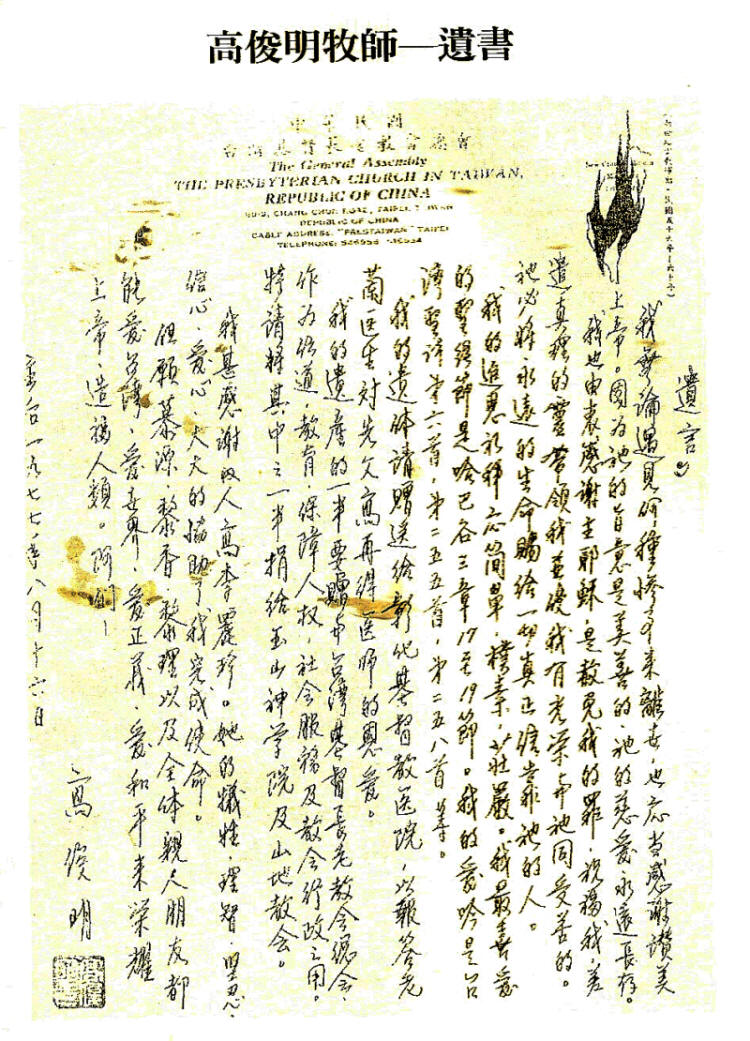 高俊明牧師—遺書
中華民國
台灣基督長老教會總會
The General Assembly
THE PRESBYTERIAN CHURCH IN TAIWAN,
REPUBLIC OF CHINA
REPUBLIC OF CHINA
CABLE ADDRESS: "PRESTAIWAN" TAIPEI
遺言。
我無論遇見何種慘事来離世，也应当感謝讚美
上帝。因为祂的旨意是美善的祂的慈愛永遠長存。
我也由衷感謝主耶穌，是赦免我的罪，祝福我，差
遣真理的靈帶領我並使我有光榮与祂同受苦的。
祂必將永遠的生命賜給一切真正信靠祂的人。
我的追思礼拜应簡單，樸素，莊嚴。我最喜愛
的聖經節是哈巴谷三章17至19節。我的愛吟是台
灣聖詩第六首，第二五五首，第二五八首等。
我的遺体請贈送給彰化基督教医院，以報答老
蘭医生对先父高再得医師的恩愛。
我的遺產的一半要贈与台灣基督長老教会總会，
作为传道，教育，保障人权，社会服務及教会行政之用。
特請將其中之一半捐給玉山神学院及山地教会。
我甚感謝内人高李麗珍。她的犧牲，理智，堅忍，
信心，愛心，大大的協助了我完成使命。
但願慕源，黎香，黎理以及全体親人朋友都
能愛台灣，愛世界，愛正義，愛和平来榮耀
上帝，造福人類。阿們！
高俊明
主后一九七七年八月十六日